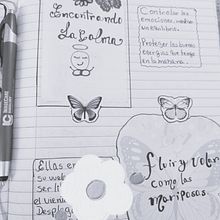 Encontrando
La Calma
Controlar las
emociones,
equilibrio.
Proteger las buenas
energias que tengo
en la mañana.
Ellas en
su
ser li
el vien
Desplega
fluir y volar
como las
mariposas